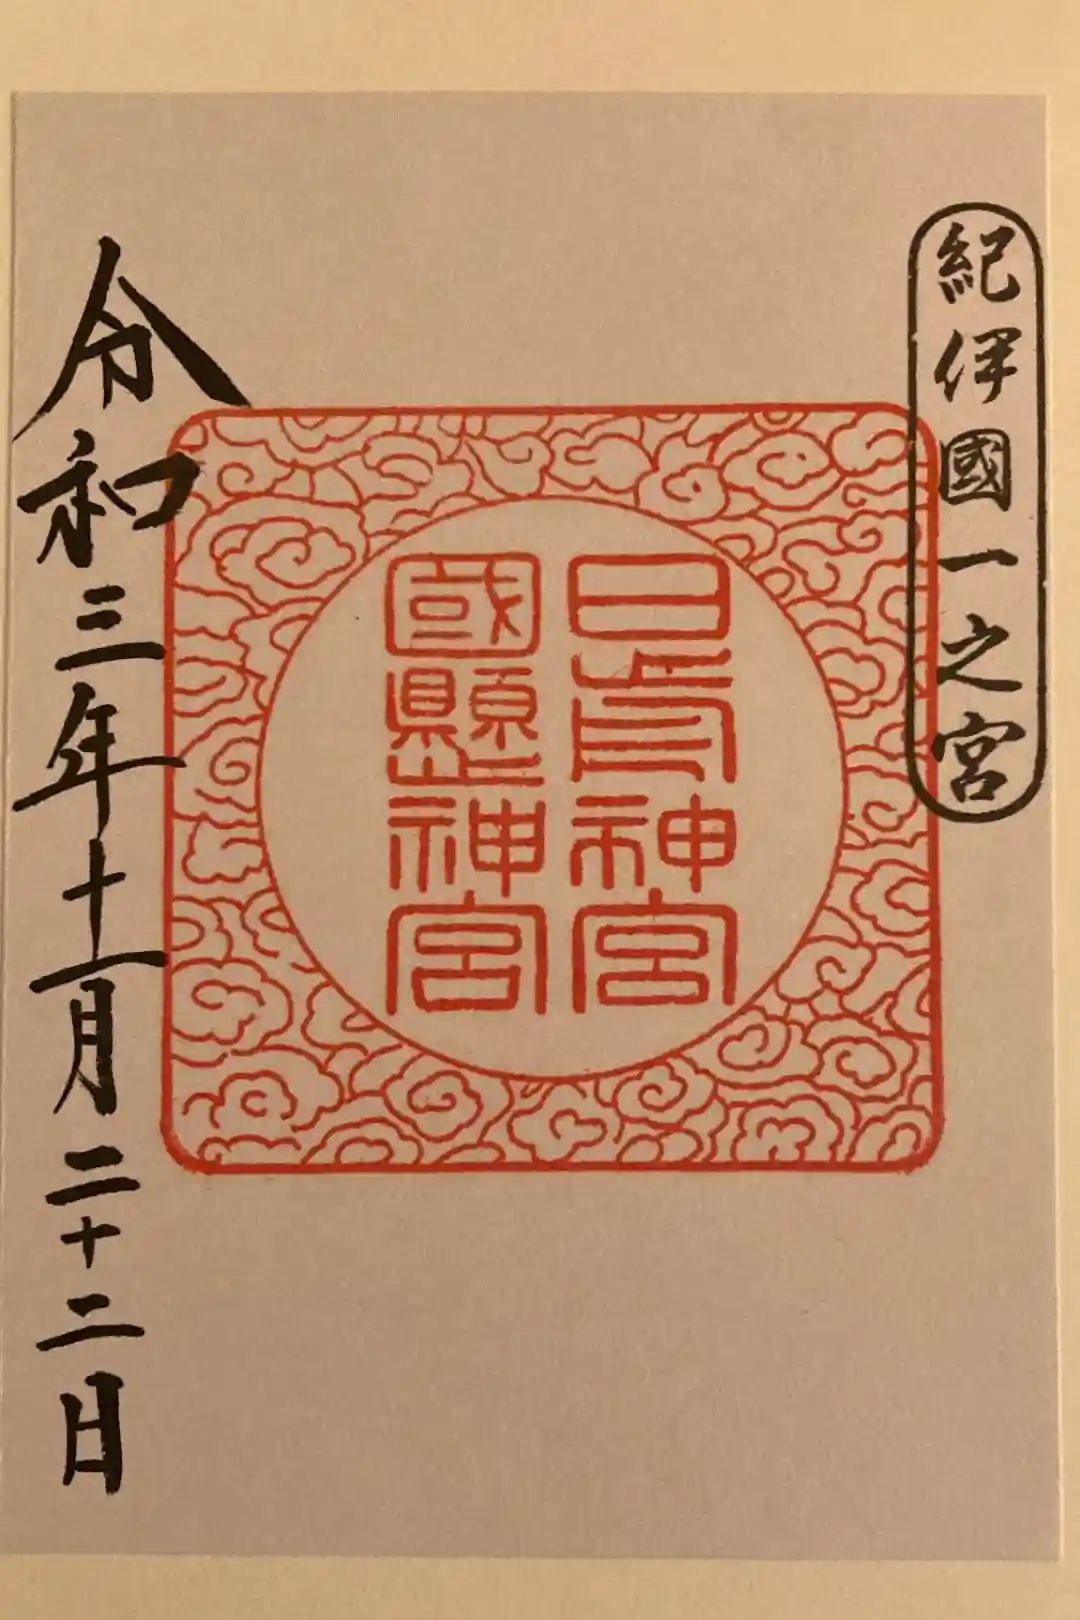 紀伊國一之宮
日前神宮
國懸神宮
令和三年十一月二十二日